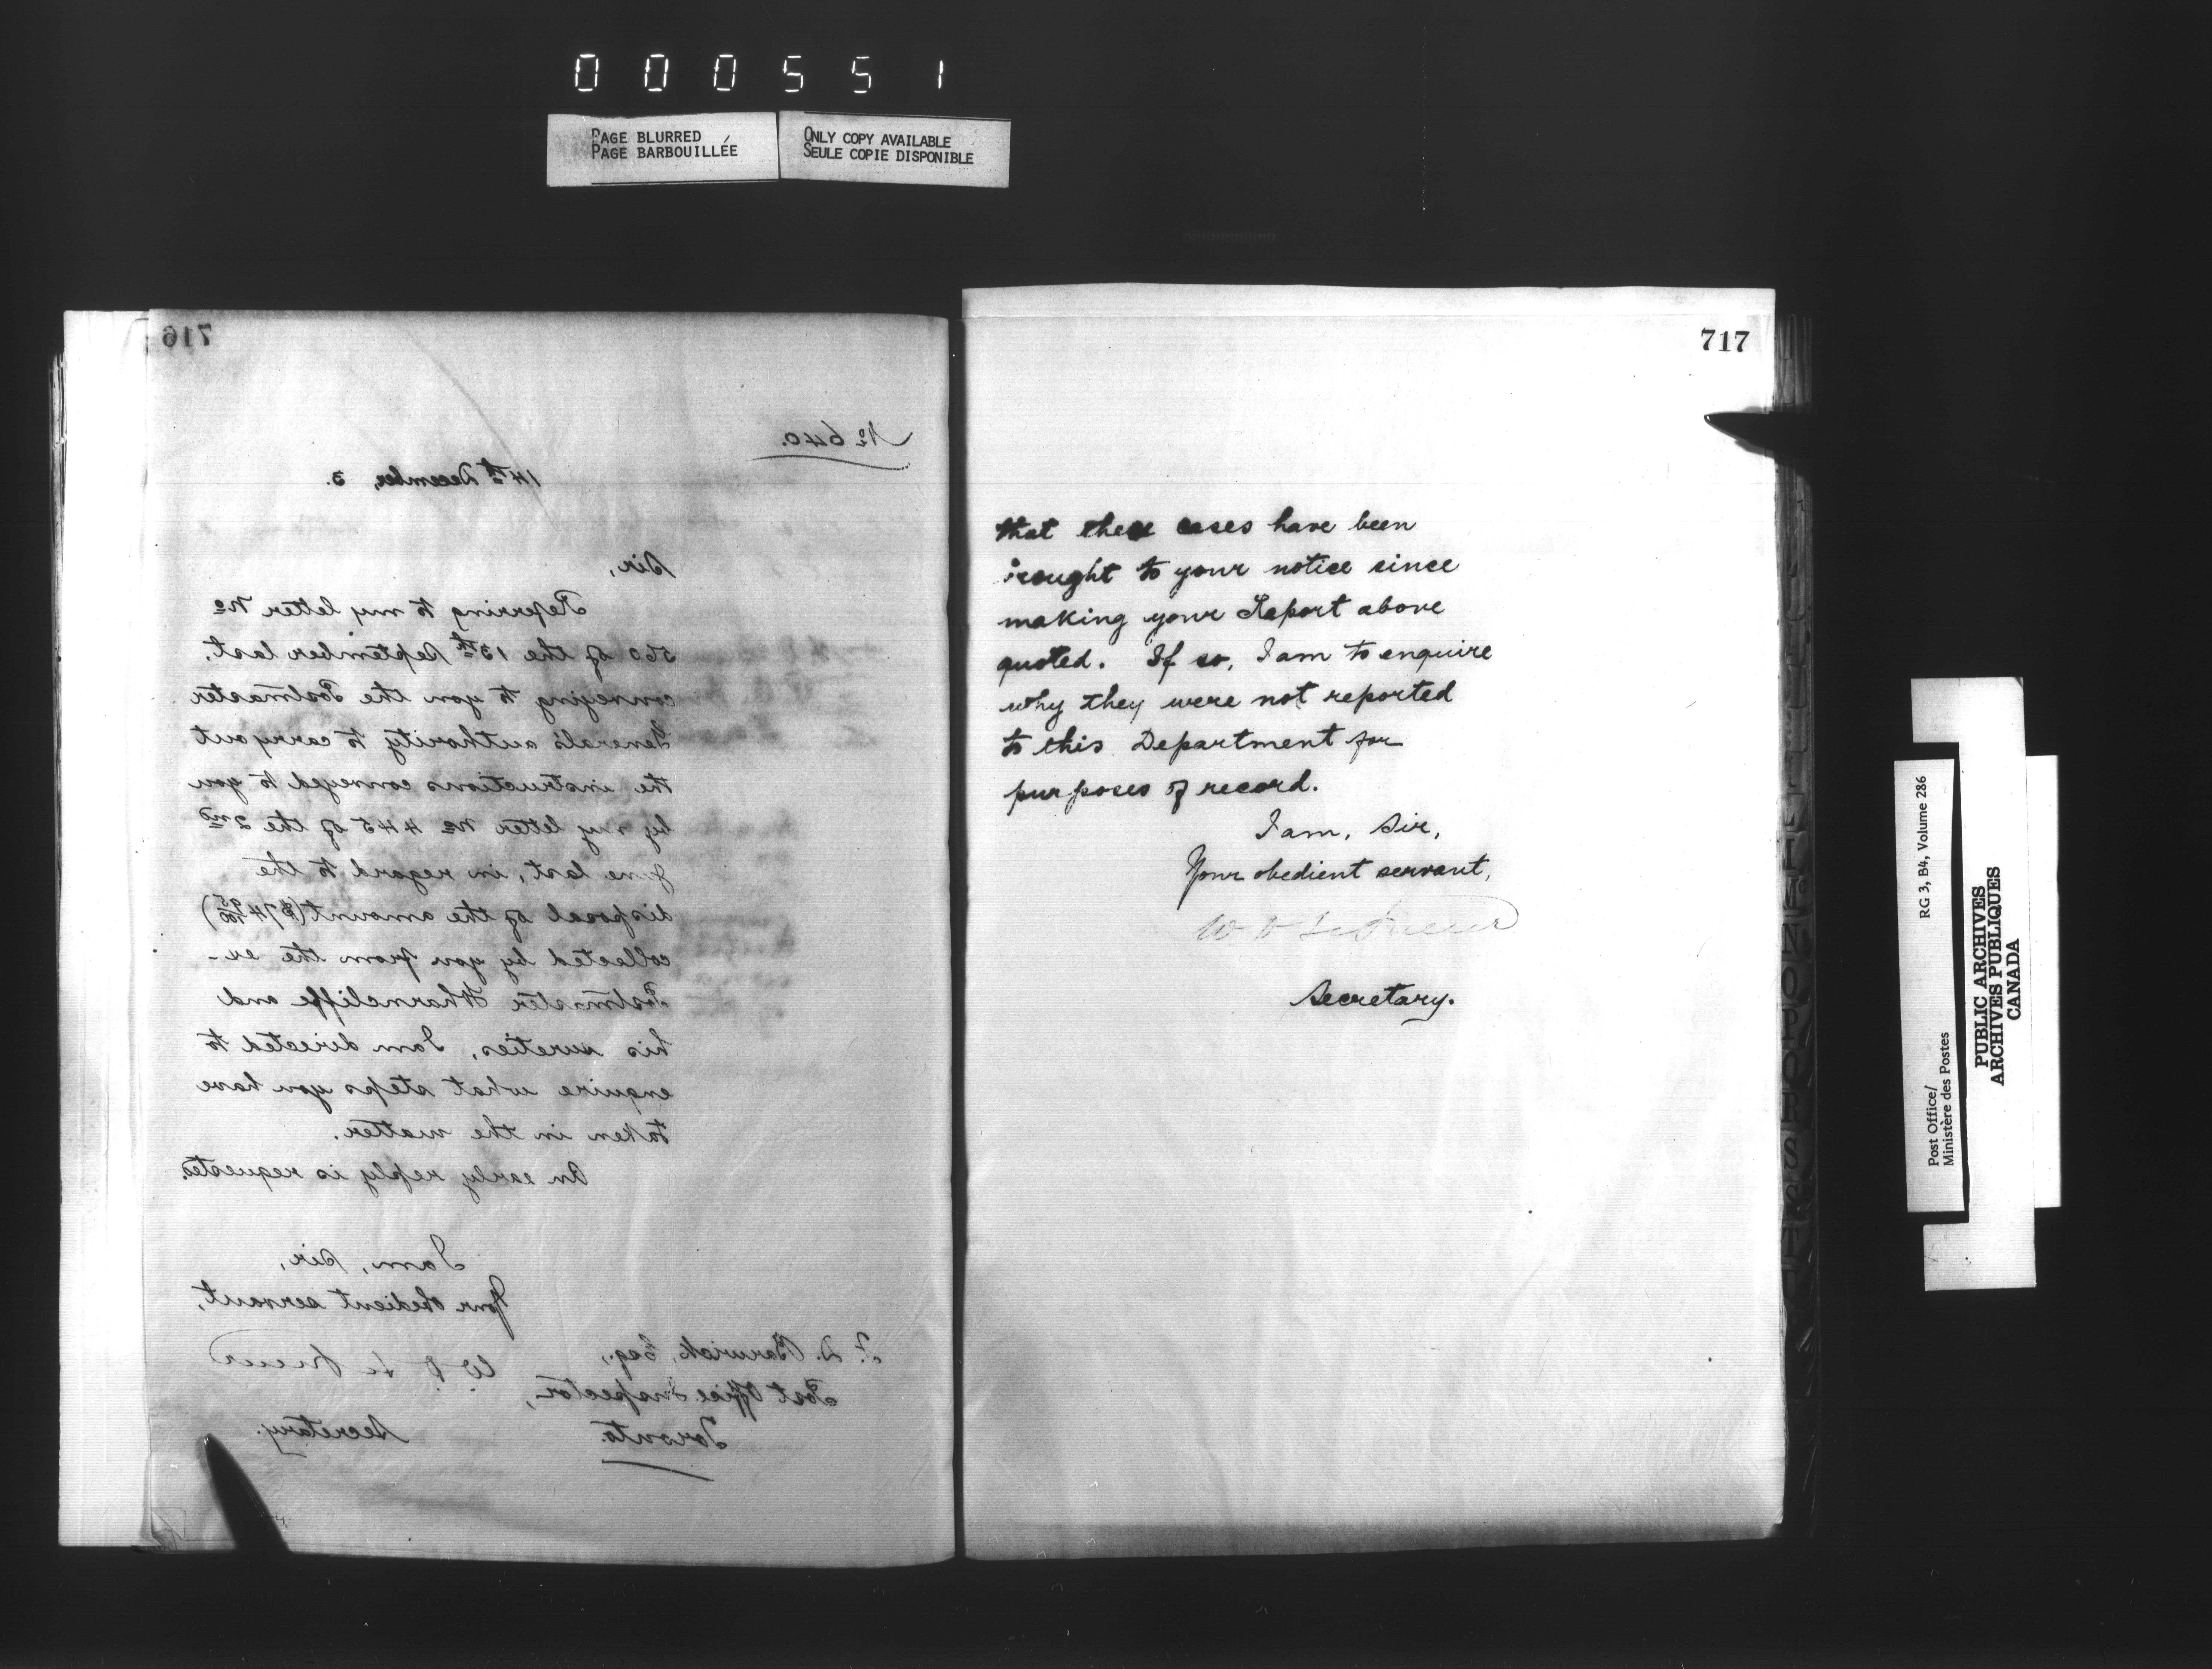 000551
PAGE BLURRED
PAGE BARBOUILLÉE
ONLY COPY AVAILABLE
SEULE COPIE DISPONIBLE
716
No 640.
14th December, 3.
Sir,
Referring to my letter No
560 of the 13th September last,
conveying to you the Postmaster
General's authority to carry out
the instructions conveyed to you
by my letter No 445 of the 2nd
June last, in regard to the
disposal of the amount ($74 95/100)
collected by you from the ex-
Postmaster Wharncliffe and
his sureties, I am directed to
enquire what steps you have
taken in the matter.
An early reply is requested.
I am, Sir,
Your obedient servant,
W D Le Sueur
Secretary.
F. D. Barwick, Esq.,
Post Office Inspector,
Toronto.
717
that these cases have been
brought to your notice since
making your Report above
quoted. If so, I am to enquire
why they were not reported
to this Department for
purposes of record.
I am, Sir,
Your obedient servant,
W D Le Sueur
Secretary.
Post Office/
Ministère des Postes
RG 3, B4, Volume 286
PUBLIC ARCHIVES
ARCHIVES PUBLIQUES
CANADA